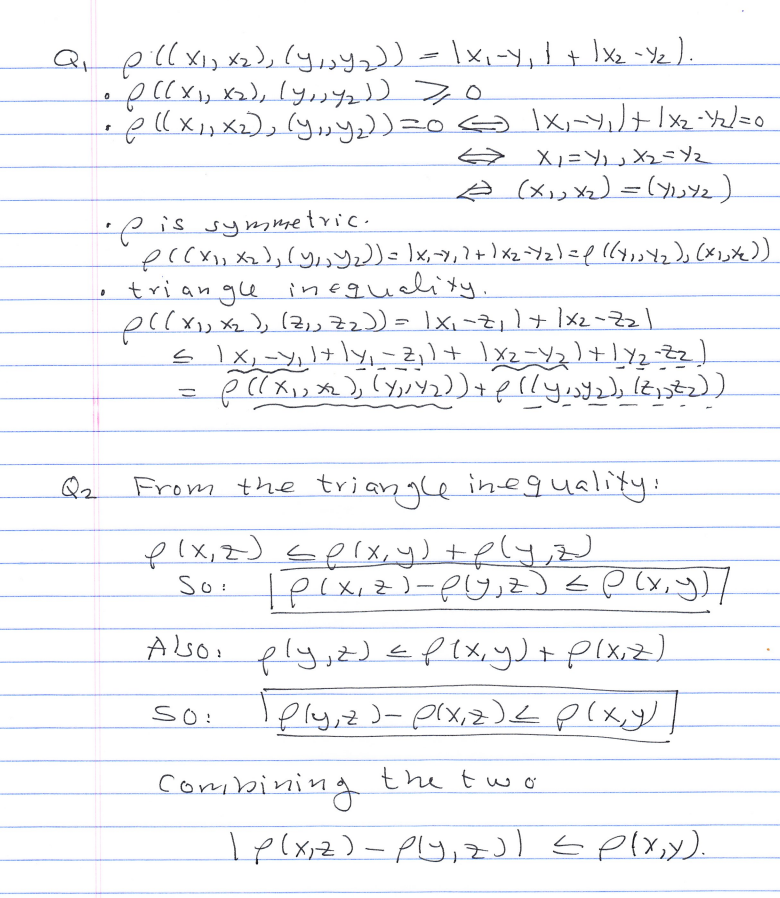 Q1 ρ((x₁, x₂), (y₁, y₂)) = |x₁-y₁| + |x₂-y₂|.
• ρ((x₁, x₂), (y₁, y₂)) ⩾ 0
• ρ((x₁, x₂), (y₁, y₂)) = 0 ⟺ |x₁-y₁| + |x₂-y₂| = 0
⟺ x₁=y₁, x₂=y₂
⟺ (x₁, x₂) = (y₁, y₂)
• ρ is symmetric.
ρ((x₁, x₂), (y₁, y₂)) = |x₁-y₁| + |x₂-y₂| = ρ((y₁, y₂), (x₁, x₂))
• triangle inequality.
ρ((x₁, x₂), (z₁, z₂)) = |x₁-z₁| + |x₂-z₂|
≤ |x₁-y₁| + |y₁-z₁| + |x₂-y₂| + |y₂-z₂|
= ρ((x₁, x₂), (y₁, y₂)) + ρ((y₁, y₂), (z₁, z₂))
Q2 From the triangle inequality:
ρ(x,z) ≤ ρ(x,y) + ρ(y,z)
So: ρ(x,z) - ρ(y,z) ≤ ρ(x,y)
Also: ρ(y,z) ≤ ρ(x,y) + ρ(x,z)
So: ρ(y,z) - ρ(x,z) ≤ ρ(x,y)
Combining the two
|ρ(x,z) - ρ(y,z)| ≤ ρ(x,y).